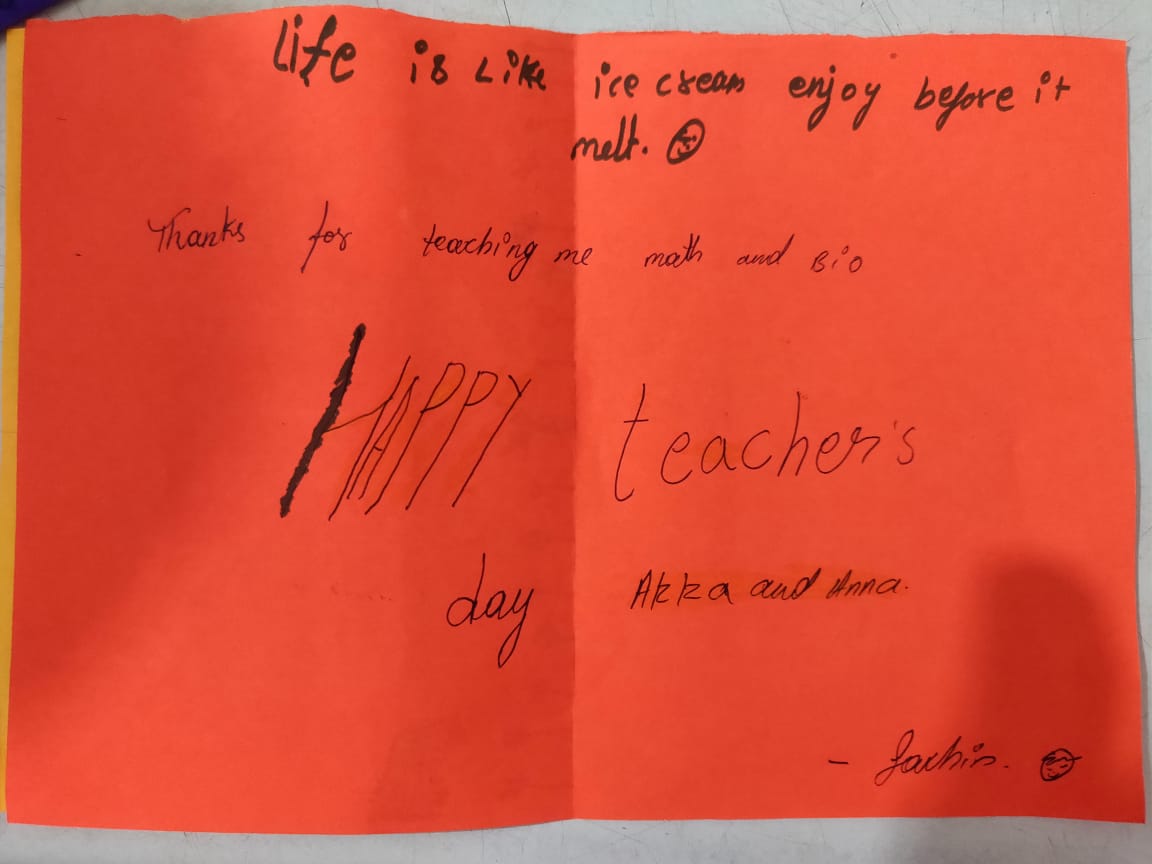 Life is Like ice cream enjoy before it
melt.
Thanks for teaching me math and Bio
HAPPY teacher's
day Akka and Anna.
-